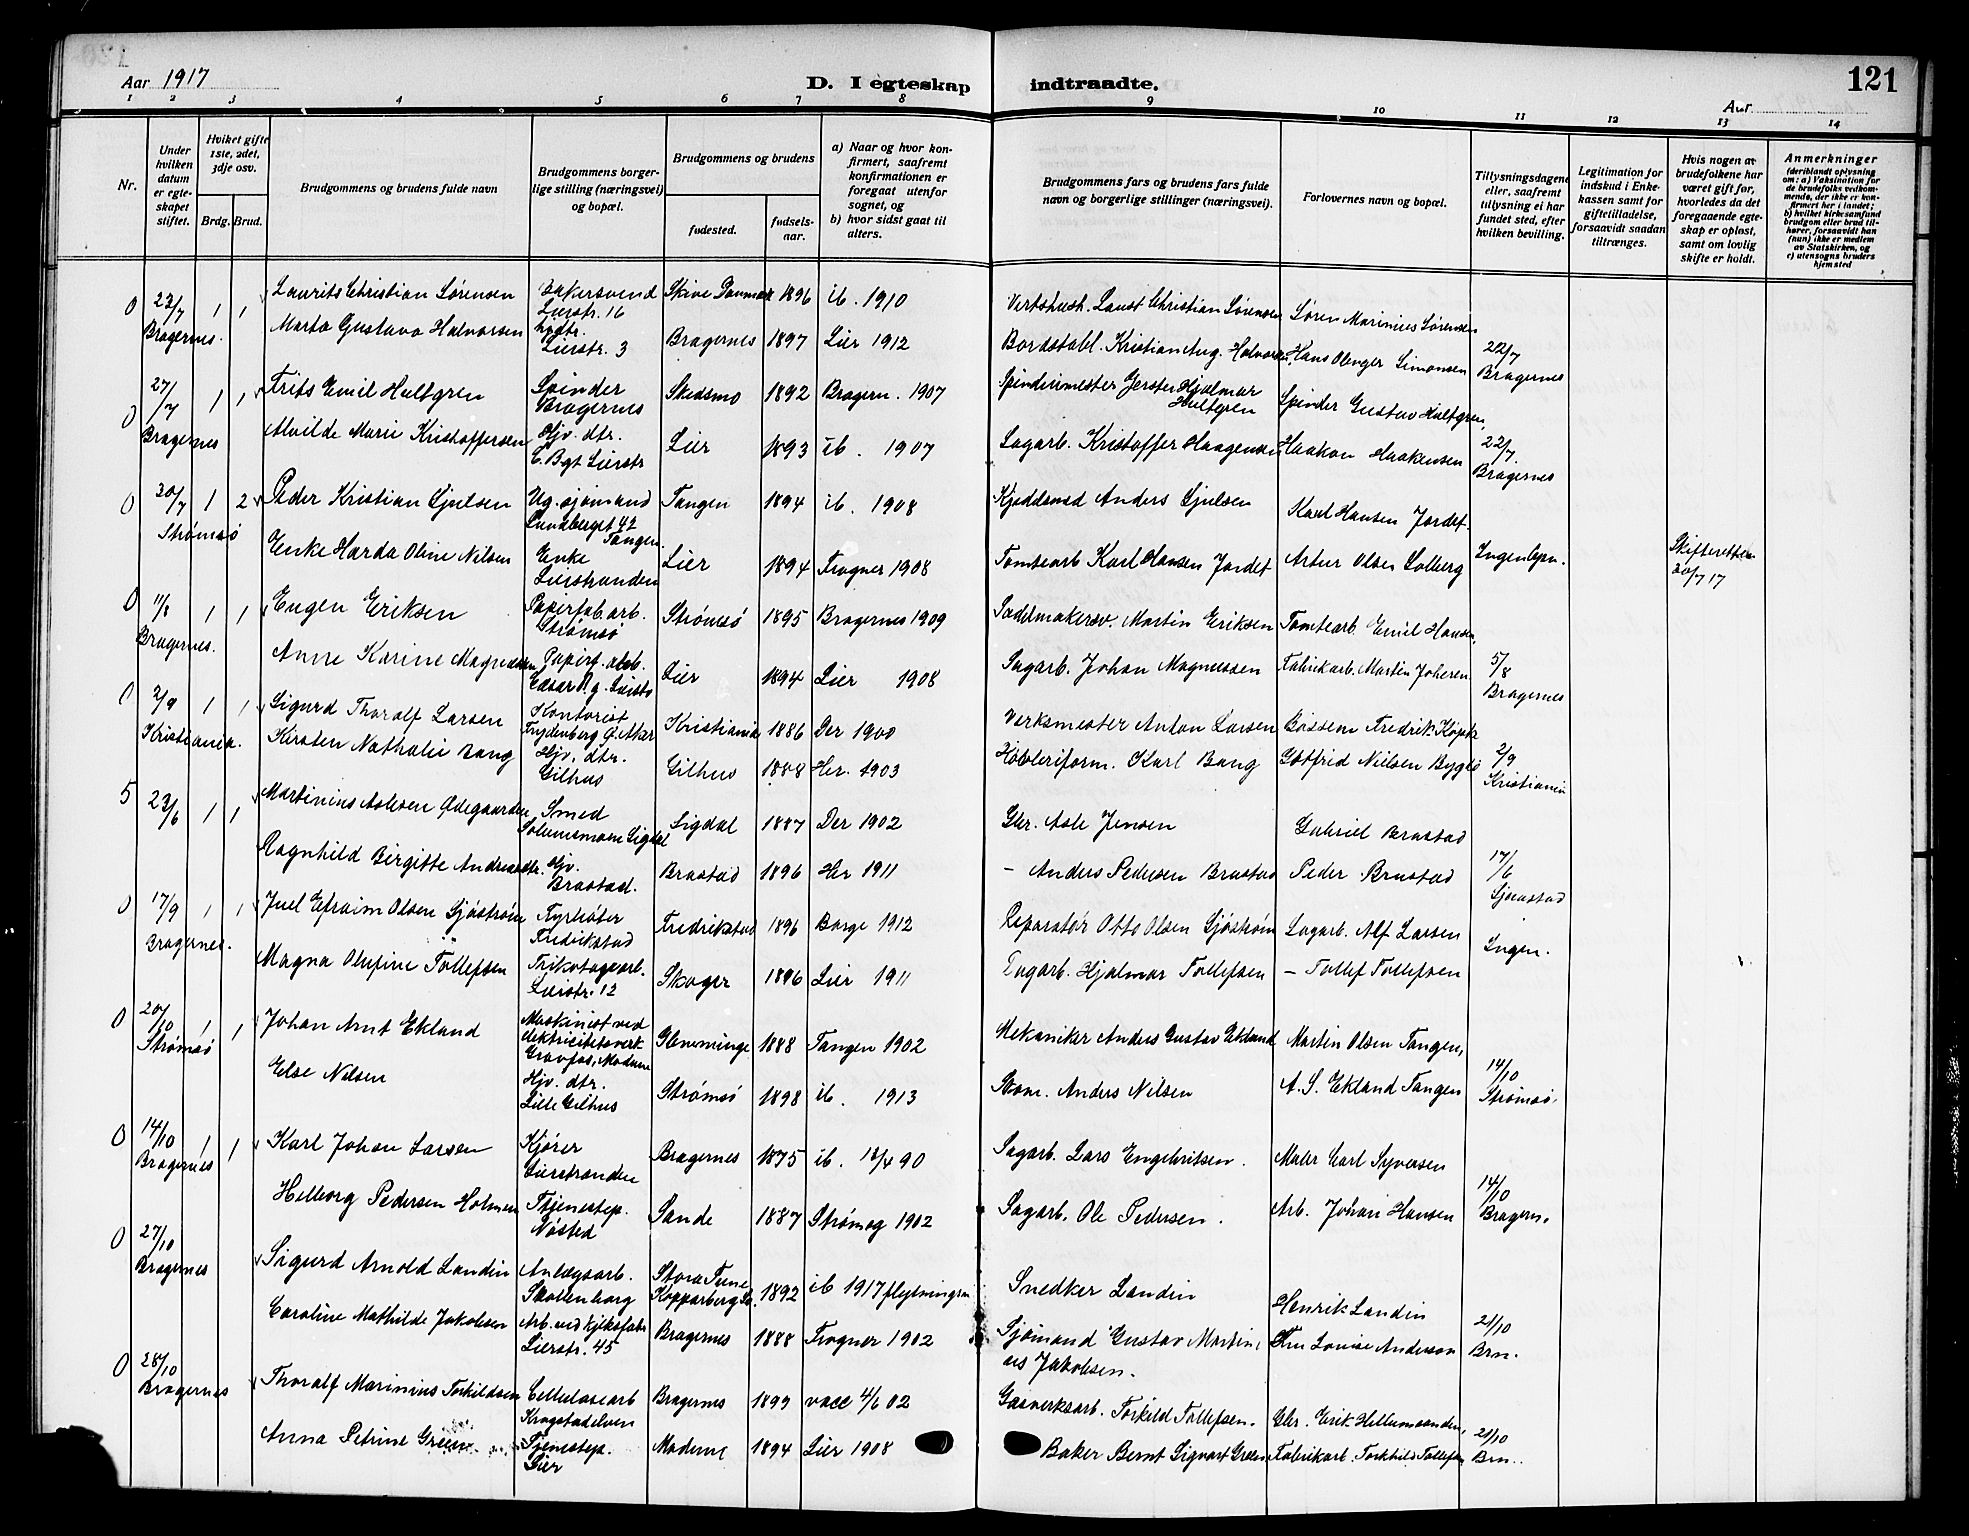 Aar 1917
D. I egteskap indtraadte.
121
Aar
1 2 3 4 5 6 7 8 9 10 11 12 13 14
Nr.
Under hvilken datum er egteskapet stiftet.
Hviket gifte 1ste, 2det, 3dje osv.
Brdg. Brud.
Brudgommens og brudens fulde navn
Brudgommens borgerlige stilling (næringsvei) og bopæl.
Brudgommens og brudens
fødested.
fødselsaar.
a) Naar og hvor konfirmert, saafremt konfirmationen er foregaat utenfor sognet, og
b) hvor sidst gaat til alters.
Brudgommens fars og brudens fars fulde navn og borgerlige stillinger (næringsvei).
Forlovernes navn og bopæl.
Tillysningsdagene eller, saafremt tillysning ei har fundet sted, efter hvilken bevilling.
Legitimation for indskud i Enkekassen samt for giftetilladelse, forsaavidt saadan tiltrænges.
Hvis nogen av brudefolkene har været gift før, hvorledes da det foregaaende egteskap er opløst, samt om lovlig skifte er holdt.
Anmerkninger (deriblandt oplysning om: a) Vaksination for de brudefolks vedkommende, der ikke er konfirmert her i landet; b) hvilket kirkesamfund brudgom eller brud tilhører, forsaavidt han (hun) ikke er medlem av Statskirken, og c) utensogns bruders hjemsted
0 1 1 Laurits Christian Sørensen Bakersvend Lierstr. 16 Skive Danmark 1896 ib. 1910 Laust Christian Sørensen Søren Marinius Sørensen
Bragernes. Marta Gustava Halvorsen Lierstr. 3 Bragernes 1897 Lier 1912 Bordstabl. Kristian Aug. Halvorsen Hans Olenger Simonsen 22/7 Bragernes
0 27/7 1 1 Frits Emil Hultgren Spinder Bragernes Skedsmo 1892 Bragern. 1907 Spinderimester Hjalmar Hultgren Spinder Gustav Hultgren,
Bragernes Alvilde Marie Kristoffersen Hjv. dtr. Lier 1893 ib. 1907 Sagarb. Kristoffer Haagensen Haakon Haakensen 22/7. Bragernes
0 30/7 1 2 Peder Kristian Gjulsen Ug. sjømand Tangen Tangen 1894 ib. 1908 Anders Gjulsen Karl Hansen Jordet.
Strømsø Enke Harda Oline Nilsen Enke Lierstranden Lier 1894 Frogner 1908 Tomtearb Karl Hansen Jordet Artur Olsen Solberg Skifteretten 30/7 17
0 11/8 1 1 Eugen Eriksen Papirfab.arb. Strømsø Strømsø 1895 Bragernes 1909 Sadelmakersv. Martin Eriksen Tomtearb. Emil Hansen,
Bragernes. Anne Karine Magnussen Papirf. arb. Lier 1894 Lier 1908 Sagarb. Johan Magnussen Fabrikarb. Martin Johesen 5/8 Bragernes
0 2/9 1 1 Sigurd Thoralf Larsen Kontorist Kristiania 1886 Der 1900 Verksmester Anton Larsen Fredrik
Kristiania. Kirsten Nathalie Bang Hjv. dtr. Gilhus Gilhus 1888 Her. 1903 Høvleriform. Karl Bang Gotfrid Nielsen Bygdø 2/9 Kristiania
5 23/6 1 1 Martinius Aslesen Ødegaarden Smed Sigdal Sigdal 1887 Der 1902 Gbr. Asle Jensen Gabriel Brastad
Ragnhild Birgitte Andreasdtr. Hjv. Brastad. Brastad 1896 Her 1911 – Anders Pedersen Brastad Peder Brastad 17/6 Sjåstad
0 17/9 1 1 Juel Efraim Olsen Sjøstrøm Fyrbøter Fredrikstad Fredrikstad 1896 Borge 1912 Reparatør Otto Olsen Sjøstrøm Sagarb. Alf Larsen
Bragernes. Magna Olufine Tollefsen Trikotagearb. Lierstr. 12 Skoger 1896 Lier 1911 Hjalmar Tollefsen – Tollef Tollefsen Ingen.
0 20/10 1 1 Johan Arnt Ekland Maskinist ved elektricitetsverk Gravfos, Modum Glemminge 1888 Tangen 1902 Mekaniker Anders Gustav Ekland Martin Olsen Tangen,
Strømsø Else Nilsen Hjv. dtr. Lille Gilhus Strømsø 1898 ib. 1913 Anders Nilsen A. S. Ekland Tangen 14/10 Strømsø.
0 14/10 1 1 Karl Johan Larsen Kjører Lierstranden Bragernes 1875 ib. 90 Sagarb. Lars Engebritsen. Maler Carl Syversen
Bragernes Helborg Pedersen Holmen Tjenestep. Nøsted Sande 1887 Strømsg 1902 Sagarb. Ole Pedersen. Arb. Johan Hansen 14/10 Bragern.
0 27/10 Sigurd Arnold Landin Anlægsarb. Skollenborg Stora Tuna Kopparberg 1892 ib 1917 flytningsa Snedker Landin Henrik Landin
Bragernes Caroline Mathilde Jakobsen Arb. ved kjeksfabr Lierstr. 45 Bragernes 1888 Frogner 1902 Sjømand Gustav Martinius Jakobsen. Fru Louise Anderson 21/10 Brn.
0 28/10 Thoralf Marinius Torkildsen Cellulosearb Krogstadelven Bragernes vacc 4/6 02 Gasverksarb. Torkild Tollefsen. Gbr. Erik
Bragernes Anna Petrine Green Tjenestep. Lier Modum 1894 Lier 1908 Baker Bernt Sigvart Green Fabrikarb. Torkild Tollefsen 21/10 Brn.